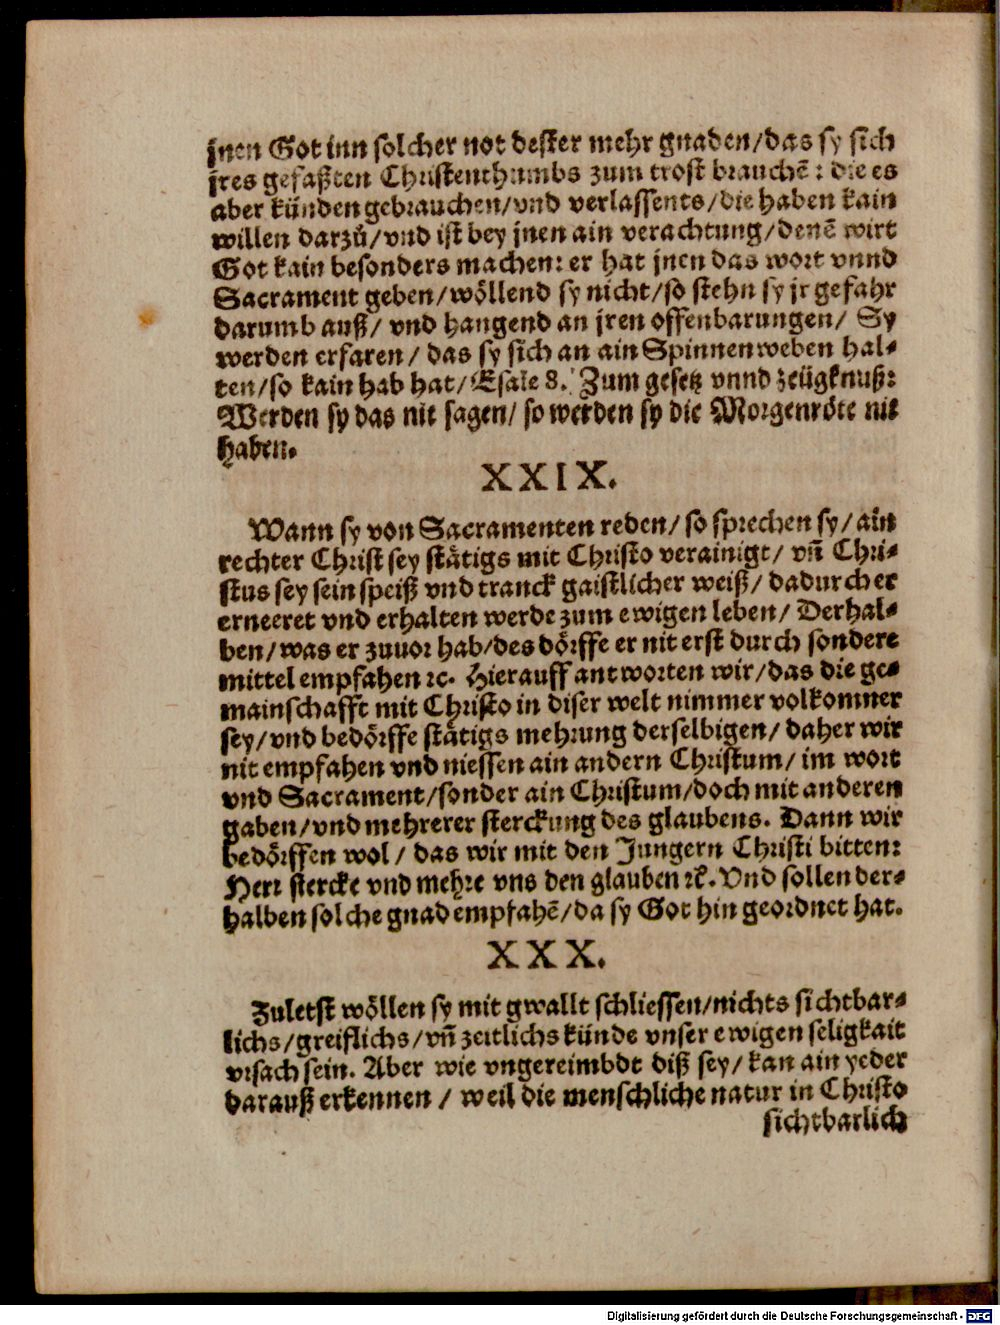 jnen Got inn solcher not dester mehr gnaden/das sy sich
jres gefaßten Christenthumbs zum trost brauchẽ: die es
aber künden gebrauchen/vnd verlassents/die haben kain
willen darzů/vnd ist bey jnen ain verachtung/denẽ wirt
Got kain besonders machen: er hat jnen das wort vnnd
Sacrament geben/wöllend sy nicht/so stehn sy jr gefahr
darumb auß/ vnd hangend an jren offenbarungen/ Sy
werden erfaren/ das sy sich an ain Spinnenweben hal-
ten/so kain hab hat/Esaie 8. Zum gesetz vnnd zeügknuß:
Werden sy das nit sagen/ so werden sy die Morgenröte nit
haben.
XXIX.
Wann sy von Sacramenten reden/ so sprechen sy/ ain
rechter Christ sey stätigs mit Christo verainigt/ vñ Chri-
stus sey sein speiß vnd tranck gaistlicher weiß/ dadurch er
erneeret vnd erhalten werde zum ewigen leben/ Derhal-
ben/was er zuuor hab/des dörffe er nit erst durch sondere
mittel empfahen ꝛc. Hierauff antworten wir/das die ge-
mainschafft mit Christo in diser welt nimmer volkomner
sey/vnd bedörffe stätigs mehrung derselbigen/ daher wir
nit empfahen vnd niessen ain andern Christum/ im wort
vnd Sacrament/sonder ain Christum/doch mit anderen
gaben/vnd mehrerer sterckung des glaubens. Dann wir
bedörffen wol/ das wir mit den Jungern Christi bitten:
Herr stercke vnd mehre vns den glauben ꝛc. Vnd sollen der-
halben solche gnad empfahẽ/da sy Got hin geordnet hat.
XXX.
Zuletst wöllen sy mit gwallt schliessen/nichts sichtbar-
lichs/greiflichs/vñ zeitlichs künde vnser ewigen seligkait
vrsach sein. Aber wie vngereimbdt diß sey/ kan ain yeder
darauß erkennen/ weil die menschliche natur in Christo
sichtbarlich
Digitalisierung gefördert durch die Deutsche Forschungsgemeinschaft - DFG